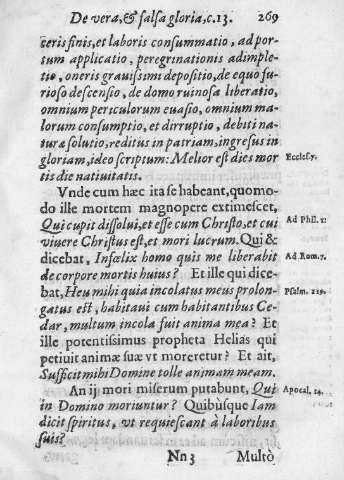 De vera, & falsa gloria, c. 13. 269
ceris finis, et laboris consummatio, ad por-
tum applicatio, peregrinationis adimple-
tio, oneris grauissimi depositio, de equo fu-
rioso descensio, de domo ruinosa liberatio,
omnium periculorum euasio, omnium ma-
lorum consumptio, et dirruptio, debiti na-
turæ solutio, reditus in patriam, ingresus in
gloriam, ideo scriptum: Melior est dies mor
tis die natiuitatis. Eccles. 7.
Vnde cum hæc ita se habeant, quomo-
do ille mortem magnopere extimescet,
Qui cupit dissolui, et esse cum Christo, et cui Ad Phil. 1:
viuere Christus est, et mori lucrum. Qui &
dicebat, Infœlix homo quis me liberabit Ad Rom. 7.
de corpore mortis huius? Et ille qui dice-
bat, Heu mihi quia incolatus meus prolon- Psalm. 119.
gatus est, habitaui cum habitantibus Ce-
dar, multum incola fuit anima mea? Et
ille potentissimus propheta Helias qui
petiuit animæ suæ vt moreretur? Et ait,
Sufficit mihi Domine tolle animam meam.
An ij mori miserum putabunt, Qui Apocal. 14.
in Domino moriuntur? Quibùsque Iam
dicit spiritus, vt requiescant à laboribus
suis?
Nn 3 Multò